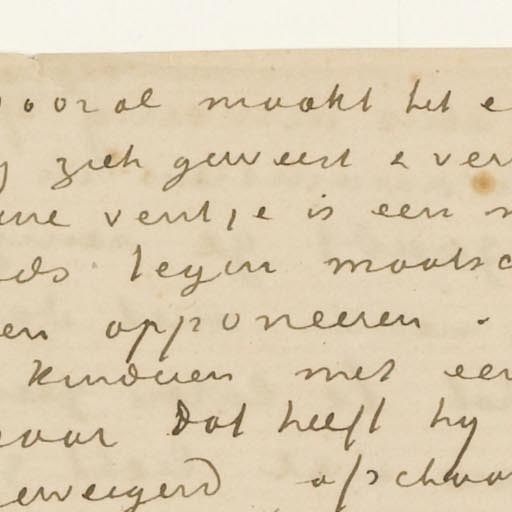 vooral maakt het e
y ziek geweest & ver
ine ventje is een
ds tegen maatsc
en opponeeren.
kinderen met een
voor Dat heeft hy
geweigerd ofschoo